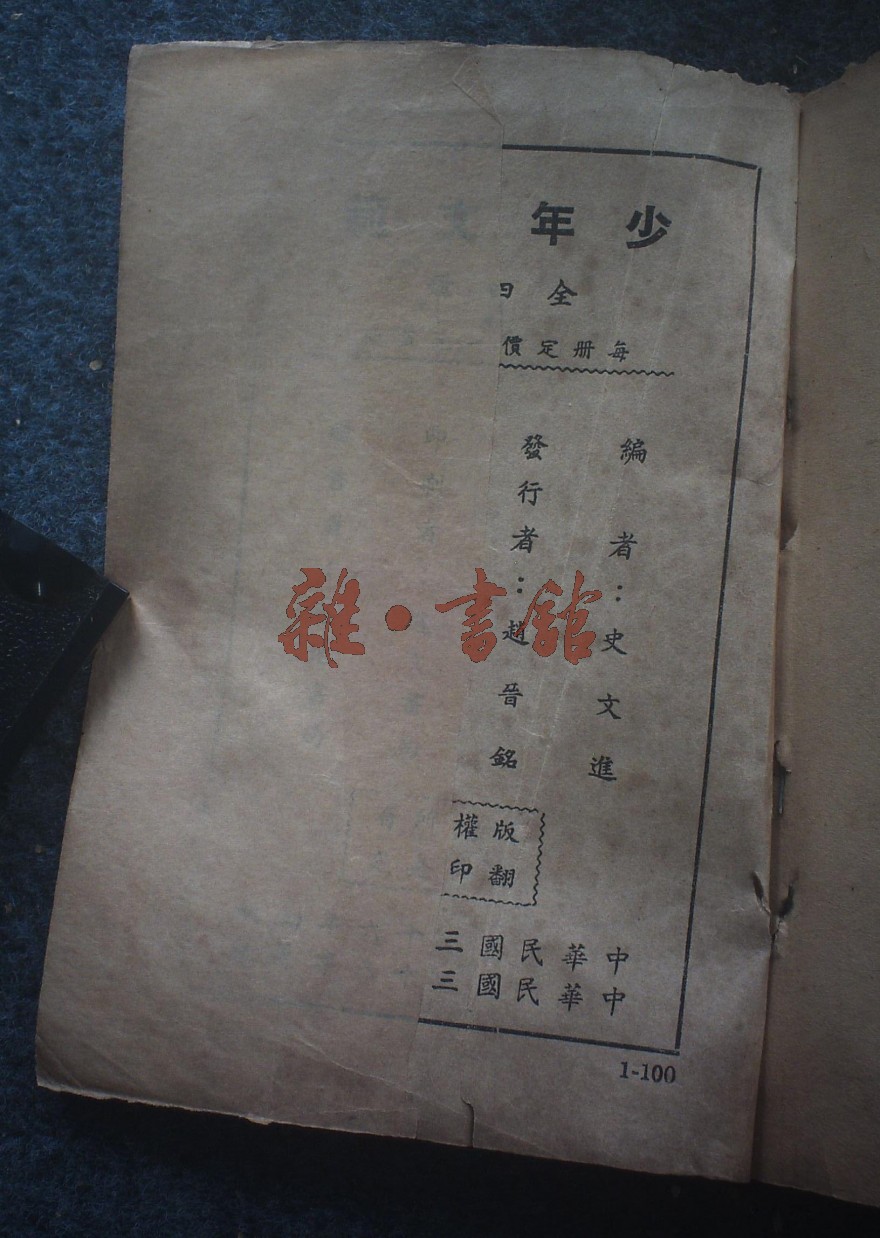 少年
全
每册定價
編者：史文進
發行者：趙晉銘
版權
翻印
中華民國三
中華民國三
1-100
雜·書館